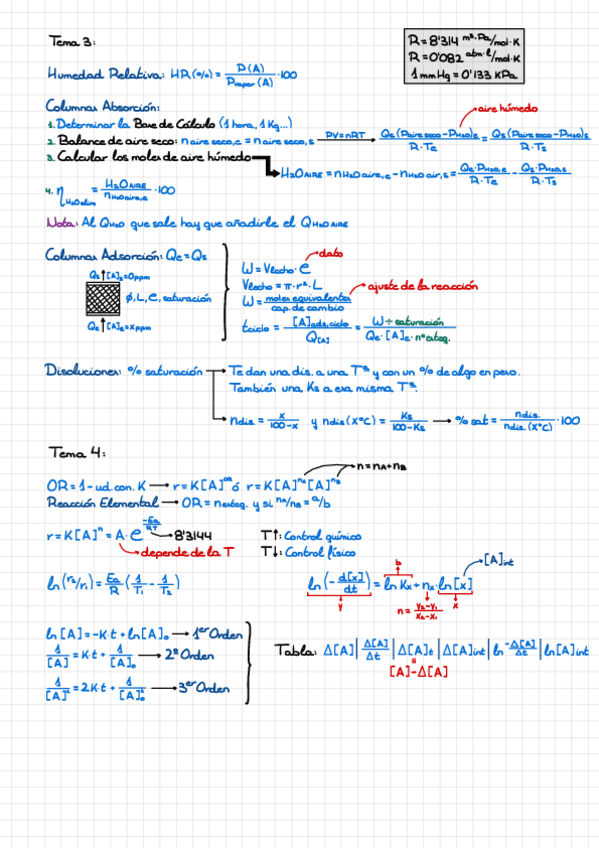 Tema 3:
R = 8'314 m³·Pa/mol·K
R = 0'082 atm·l/mol·K
1 mmHg = 0'133 KPa
Humedad Relativa: HR(%) = P(A)/Pvapor(A) · 100
Columnas Absorción:
aire húmedo
1. Determinar la Base de Cálculo (1 hora, 1 Kg...)
2. Balance de aire seco: n aire seco,e = n aire seco,s → PV=nRT → Qe(Paire seco - PH₂O)e/R·Te = Qs(Paire seco - PH₂O)s/R·Ts
3. Calcular los moles de aire húmedo → H₂O AIRE = nH₂O aire,e - nH₂O air,s = Qe·PH₂O,e/R·Te - Qs·PH₂O,s/R·Ts
4. η H₂O elim = H₂O AIRE/nH₂O aire,e · 100
Nota: Al QH₂O que sale hay que añadirle el QH₂O AIRE
Columnas Adsorción: Qe = Qs
Qs ↑ [A]s = 0ppm
φ, L, ρ, saturación
Qe ↑ [A]e = xppm
dato
W = Vlecho · ρ
Vlecho = π·r²·L
ajuste de la reacción
W = moles equivalentes/cap. de cambio
tciclo = [A]ads,ciclo/Q[A] = W÷saturación/Qe·[A]e·nºateq.
Disoluciones: % saturación → Te dan una dis. a una Tª y con un % de algo en peso.
También una Ks a esa misma Tª.
ndis = x/100-x y ndis(XºC) = Ks/100-Ks → % sat = ndis./ndis.(XºC) · 100
Tema 4:
n = nA + nB
OR = 1 - ud. con. K → r = K[A]^OR ó r = K[A]^nA [A]^nB
Reacción Elemental → OR = nesteq. y si nA/nB = a/b
r = K[A]ⁿ = A · e^(-Ea/RT) → 8'3144
depende de la T
T↑: Control químico
T↓: Control físico
ln(r₂/r₁) = Ea/R (1/T₁ - 1/T₂)
b
[A]int
ln(-d[x]/dt) = ln Kx + nx · ln[x]
y
n = y₂-y₁/x₂-x₁
x
ln[A] = -K·t + ln[A]₀ → 1er Orden
1/[A] = K·t + 1/[A]₀ → 2º Orden
1/[A]² = 2K·t + 1/[A]₀² → 3er Orden
Tabla: Δ[A] | Δ[A]/Δt | [A]t | [A]int | ln -Δ[A]/Δt | ln[A]int
[A]-Δ[A]